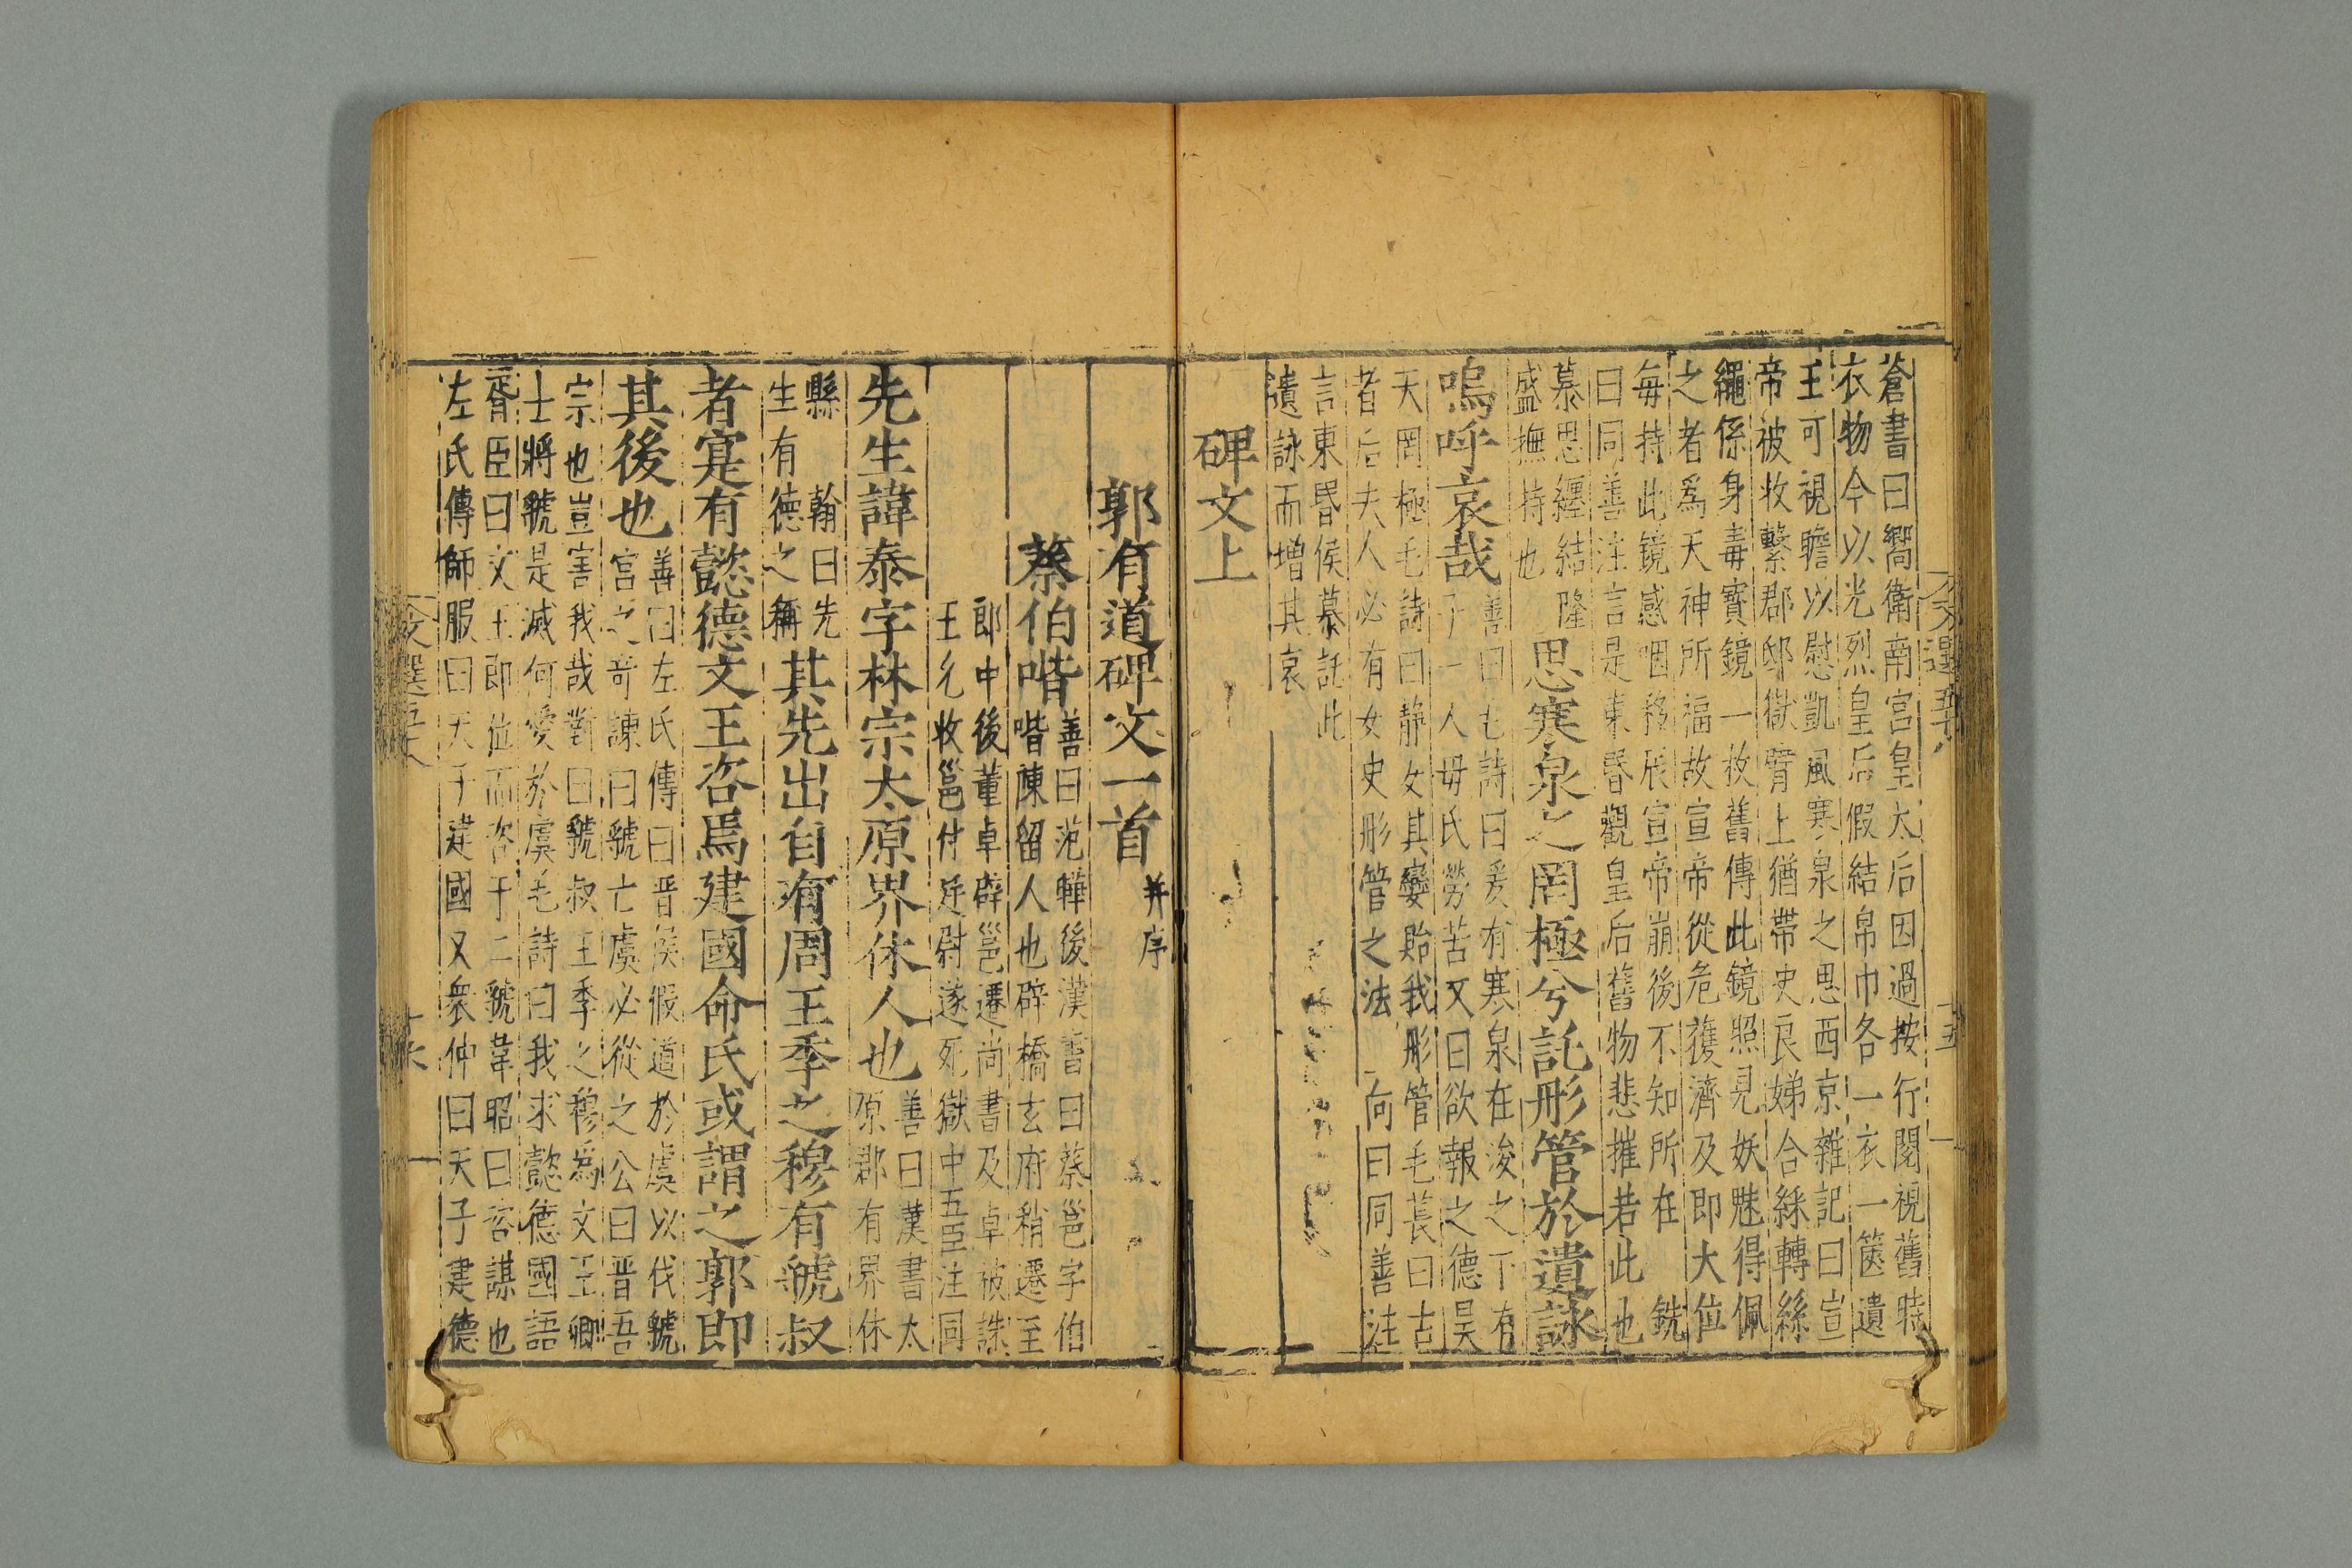 蒼書曰嚮衛南宮皇太后因過按行閱視舊時
衣物今以光烈皇后假結帛巾各一衣一篋遺
王可視瞻以慰凱風寒泉之思西京雜記曰宣
帝被收繫郡邸獄臂上猶帶史良娣合綵轉絲
繩係身毒寶鏡一枚舊傳此鏡照見妖魅得佩
之者為天神所福故宣帝從危獲濟及即大位
每持此鏡感咽移辰宣帝崩後不知所在 銑
曰同善注言是東昏觀皇后舊物悲摧若此也
思寒泉之罔極兮託彤管於遺詠
慕思纏結隆
盛撫持也
嗚呼哀哉
善曰毛詩曰爰有寒泉在浚之下有
子一人毋氏勞苦又曰欲報之德昊
天罔極毛詩曰靜女其孌貽我彤管毛萇曰古
者后夫人必有女史彤管之法 向曰同善注
言東昏侯慕託此
讀詠而增其哀
碑文上
郭有道碑文一首 并序
蔡伯喈
善曰范曄後漢書曰蔡邕字伯
喈陳留人也辟橋玄府稍遷至
郎中後董卓辟邕遷尚書及卓被誅
王允收邕付廷尉遂死獄中五臣注同
先生諱泰字林宗太原界休人也
善曰漢書太
原郡有界休
縣 翰曰先
生有德之稱
其先出自有周王季之穆有虢叔
者寔有懿德文王咨焉建國命氏或謂之郭即
其後也
善曰左氏傳曰晉侯假道於虞以伐虢
宮之奇諫曰虢亡虞必從之公曰晉吾
宗也豈害我哉對曰虢叔王季之穆為文王卿
士將虢是滅何愛於虞毛詩曰我求懿德國語
胥臣曰文王即位而咨于二虢韋昭曰咨謀也
左氏傳師服曰天子建國又衆仲曰天子建德